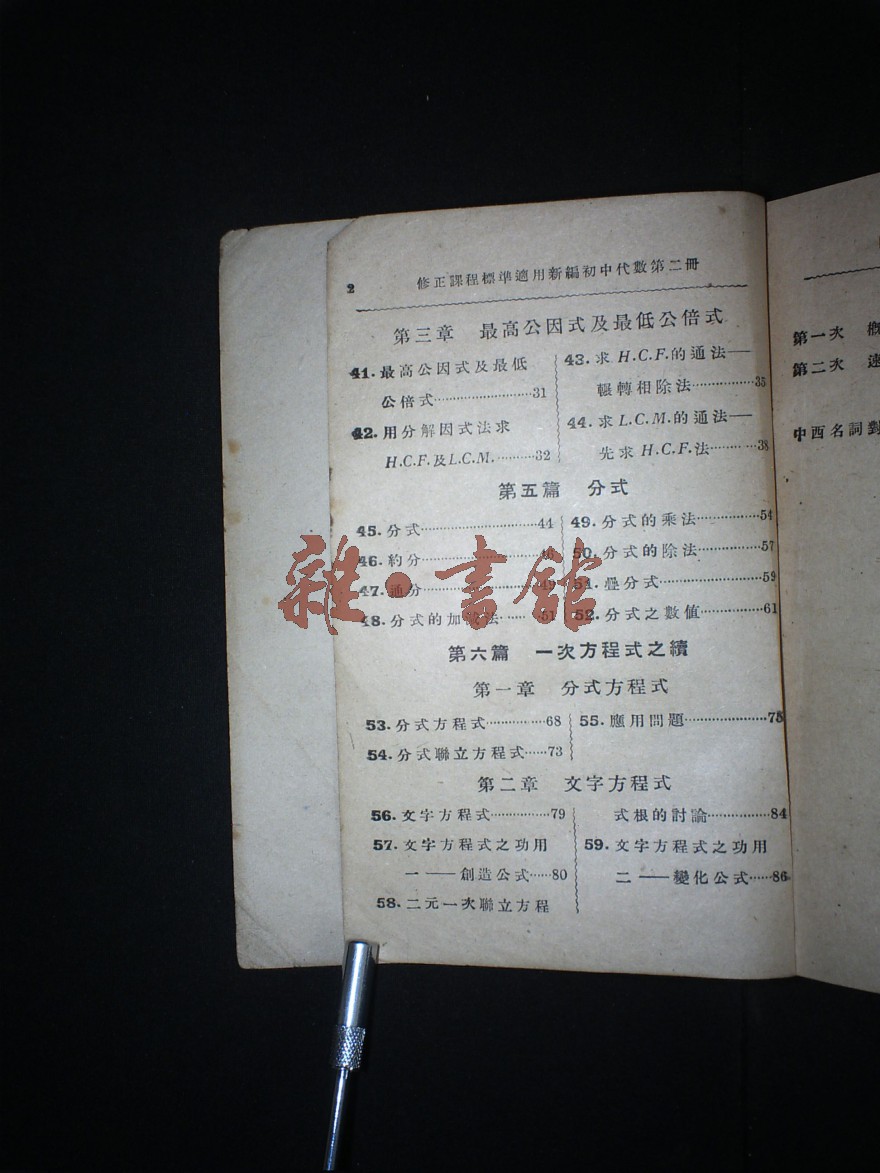 2 修正課程標準適用新編初中代數第二冊
第三章 最高公因式及最低公倍式
41. 最高公因式及最低
公倍式························31
42. 用分解因式法求
H.C.F.及L.C.M.··········32
43. 求H.C.F.的通法——
輾轉相除法···············35
44. 求L.C.M.的通法——
先求H.C.F.法·········38
第五篇 分式
45. 分式························44
46. 約分
47. 通分························49
48. 分式的加減法······51
49. 分式的乘法···············54
50. 分式的除法···············57
51. 疊分式·····················59
52. 分式之數值············61
第六篇 一次方程式之續
第一章 分式方程式
53. 分式方程式···············68
54. 分式聯立方程式······73
55. 應用問題·····················75
第二章 文字方程式
56. 文字方程式···············79
57. 文字方程式之功用
一——創造公式······80
58. 二元一次聯立方程
式根的討論···············84
59. 文字方程式之功用
二——變化公式······86
第一次
第二次 速
中西名詞對
雜·書館